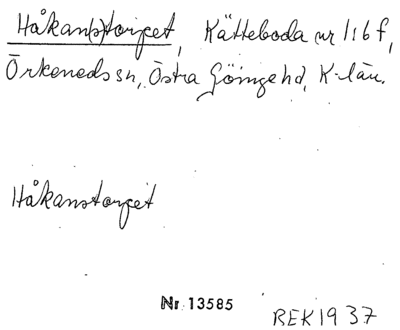 Håkan(s)torpet, Kätteboda nr 1:6 f,
Örkeneds sn, Östra Göinge hd, K-län.
Håkanstorpet
Nr 13585
BEK 1937